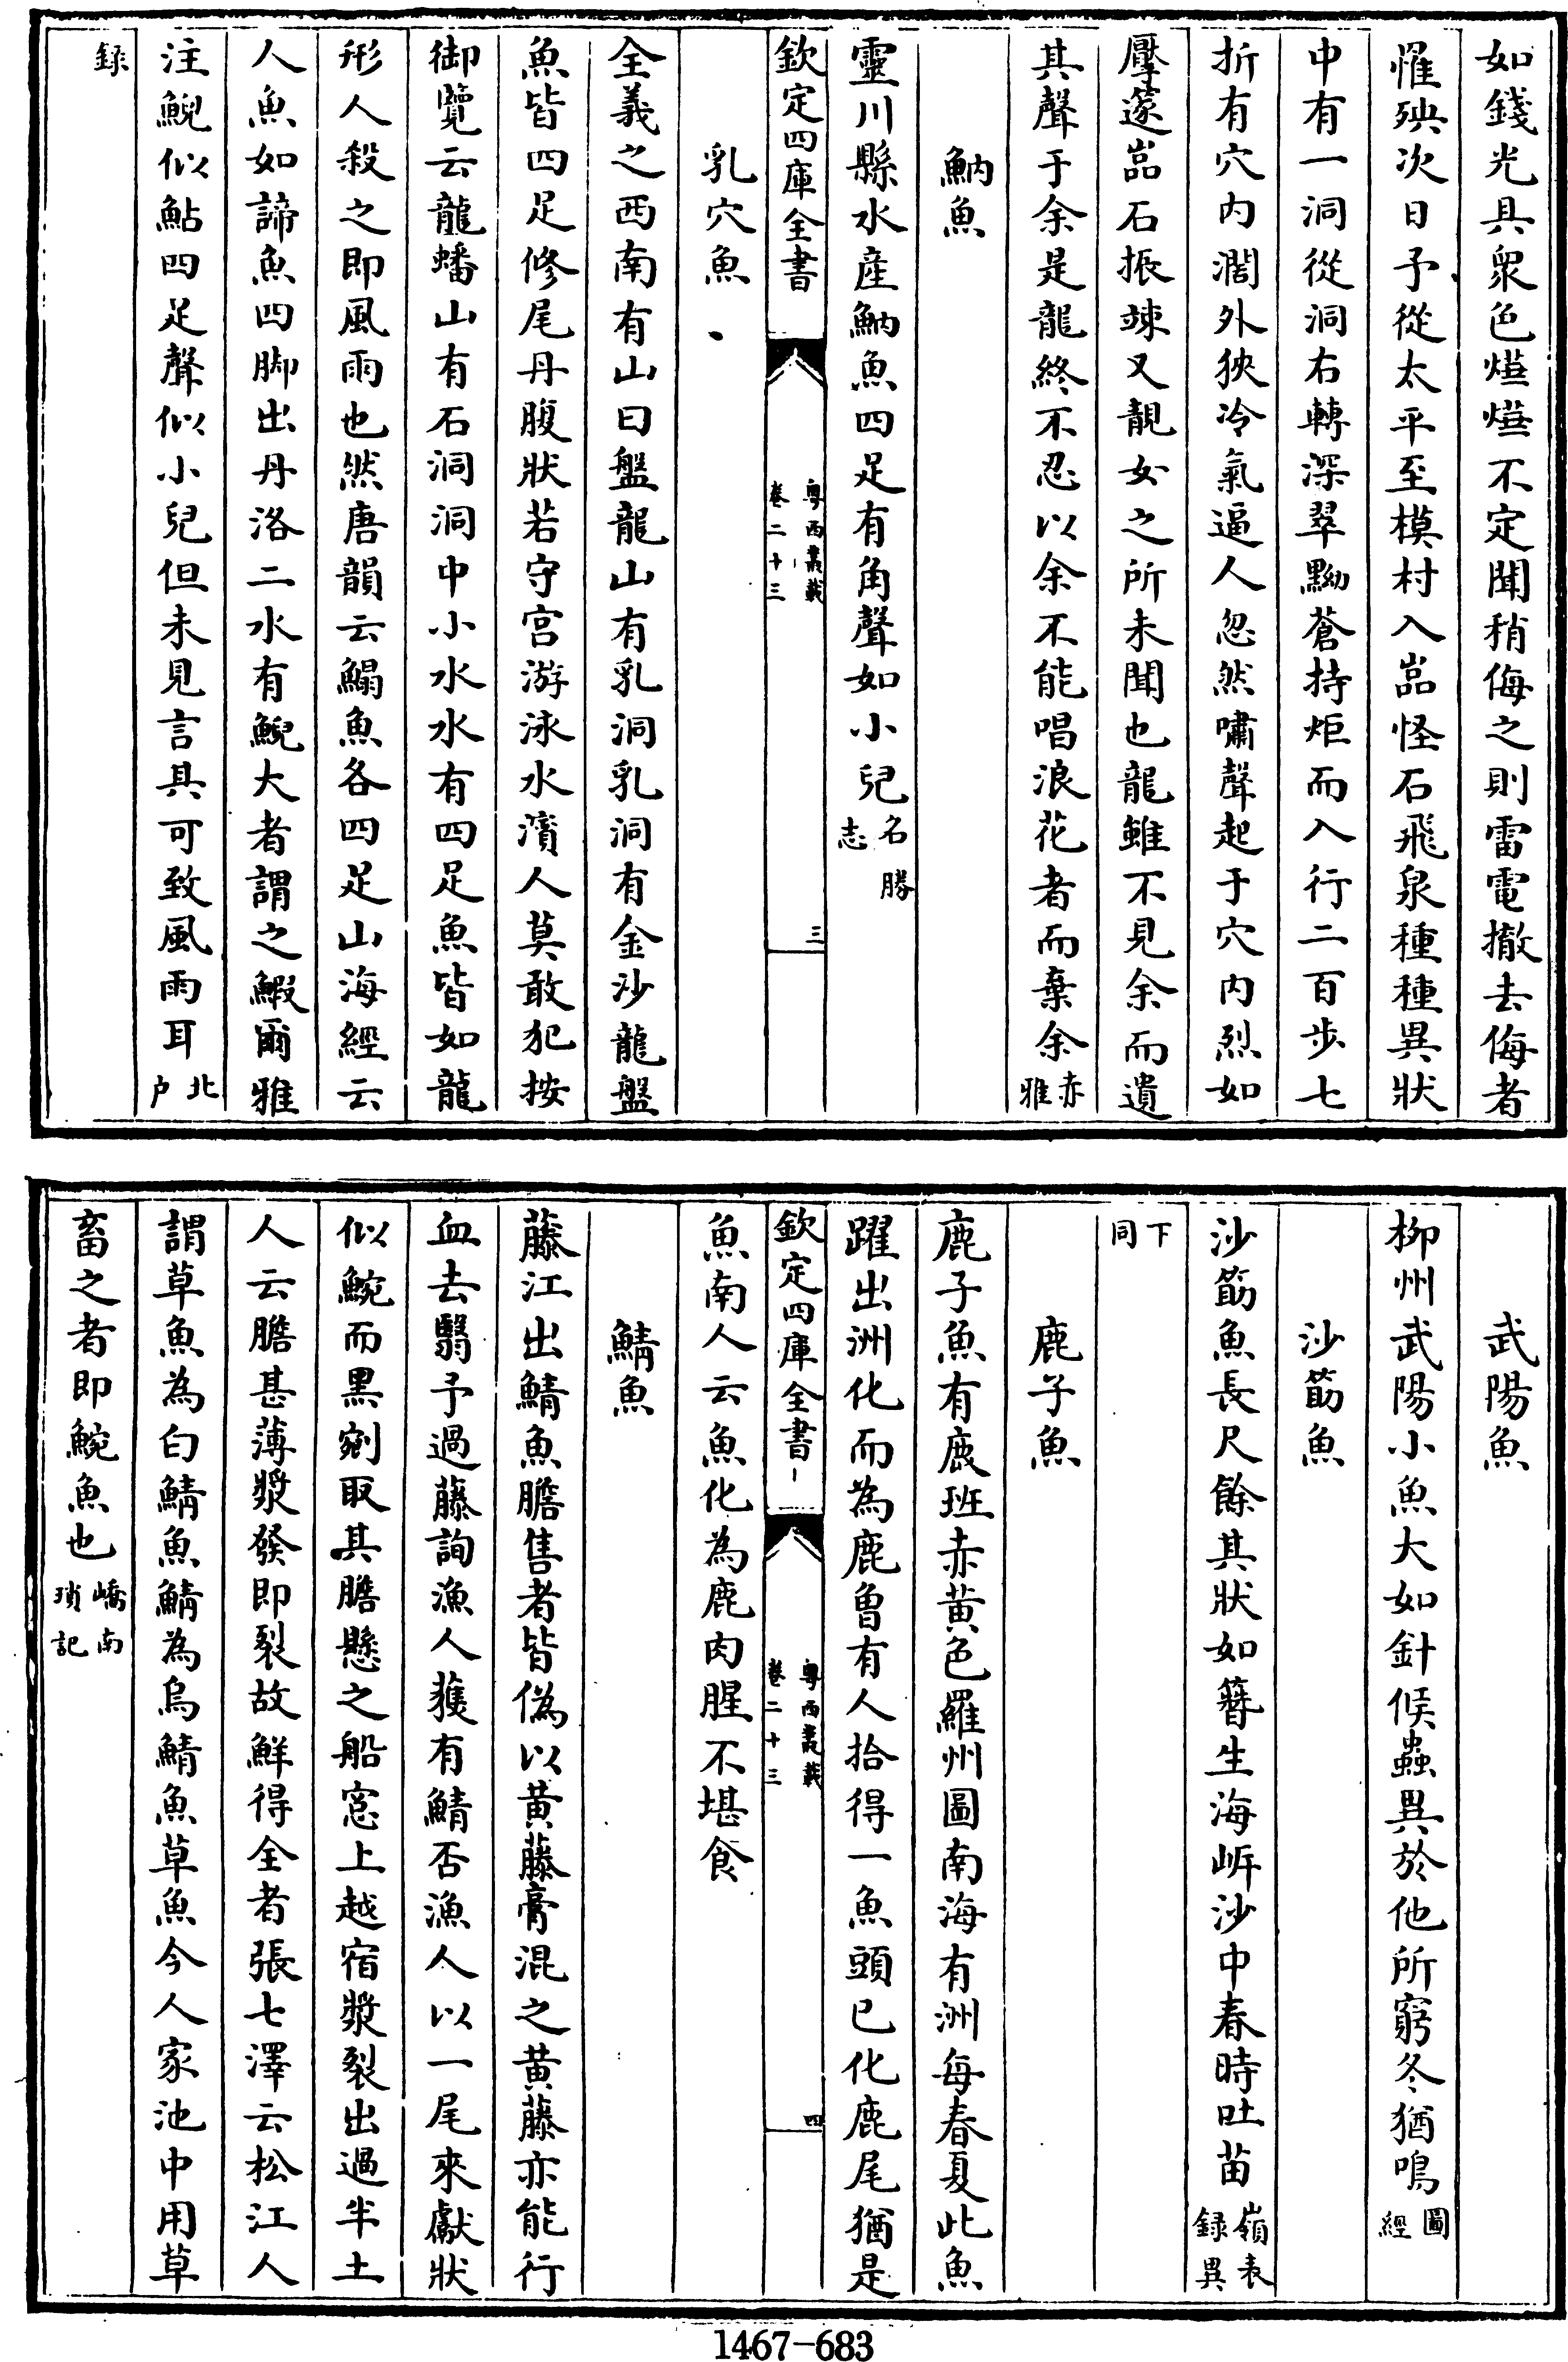 如錢光具衆色㷼㷼不定聞稍侮之則雷電撤去侮者
惟殃次日予從太平至模村入嵒怪石飛泉種種異狀
中有一洞從洞右轉深翠黝蒼持炬而入行二百步七
折有穴内濶外狹冷氣逼人忽然嘯聲起于穴内烈如
壓篴嵒石振竦又靚女之所未聞也龍雖不見余而遺
其聲于余是龍終不忍以余不能唱浪花者而棄余赤雅
魶魚
靈川縣水産魶魚四足有角聲如小兒名勝志
欽定四庫全書
粤西叢載
卷二十三
三
乳穴魚
全義之西南有山曰盤龍山有乳洞乳洞有金沙龍盤
魚皆四足修尾丹腹狀若守宫游泳水濱人莫敢犯按
御覽云龍蟠山有石洞洞中小水水有四足魚皆如龍
形人殺之即風雨也然唐韻云鰨魚各四足山海經云
人魚如䱱魚四脚出丹洛二水有鯢大者謂之鰕爾雅
注鯢似鮎四足聲似小兒但未見言具可致風雨耳北户
録
武陽魚
柳州武陽小魚大如針候蟲異於他所窮冬猶鳴圖經
沙筯魚
沙筯魚長尺餘其狀如簪生海岍沙中春時吐苗嶺表録異
下同
鹿子魚
鹿子魚有鹿班赤黄色羅州圖南海有洲每春夏此魚
躍出洲化而為鹿曾有人拾得一魚頭已化鹿尾猶是
欽定四庫全書
粤西叢載
卷二十三
四
魚南人云魚化為鹿肉腥不堪食
鯖魚
藤江出鯖魚膽售者皆偽以黄藤膏混之黄藤亦能行
血去翳予過藤詢漁人獲有鯖否漁人以一尾來獻狀
似鯇而黑剜取其膽懸之船窓上越宿漿裂出過半土
人云膽甚薄漿發即裂故鮮得全者張七澤云松江人
謂草魚為白鯖魚鯖為烏鯖魚草魚今人家池中用草
畜之者即鯇魚也嶠南瑣記
1467-683